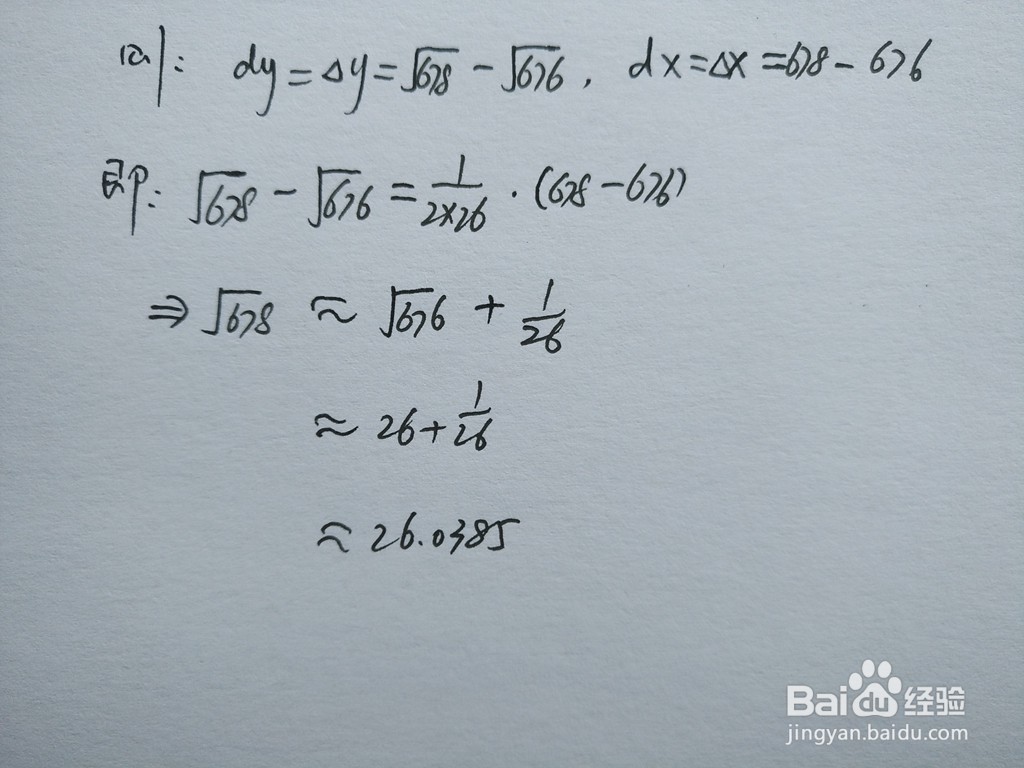 则: dy=Δy=√678-√676, dx=Δx=678-676
即: √678-√676=1/(2×26)·(678-676)
⇒√678≈√676+1/26
≈26+1/26
≈26.0385
Baidu经验
jingyan.baidu.com